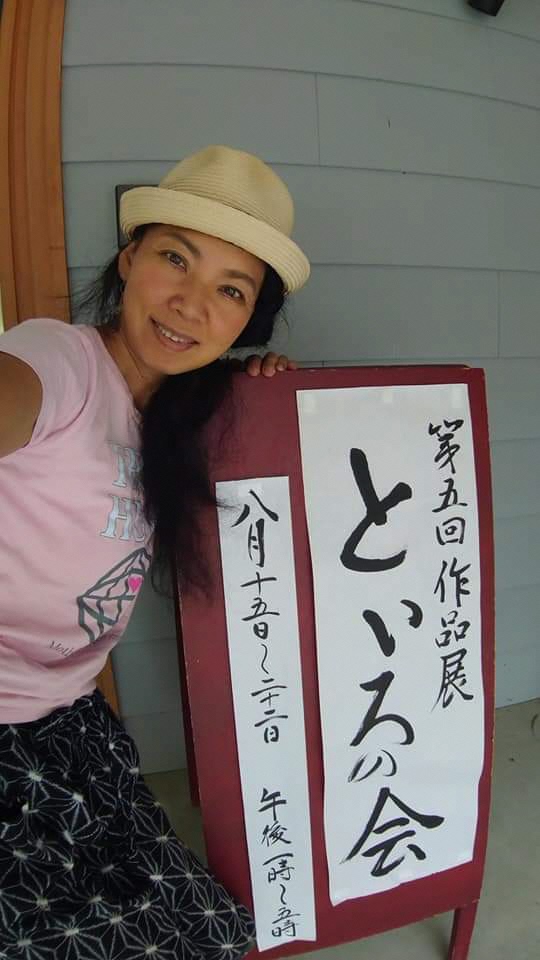 第五回作品展
といろの会
八月十五日～二十二日 午後一時～五時